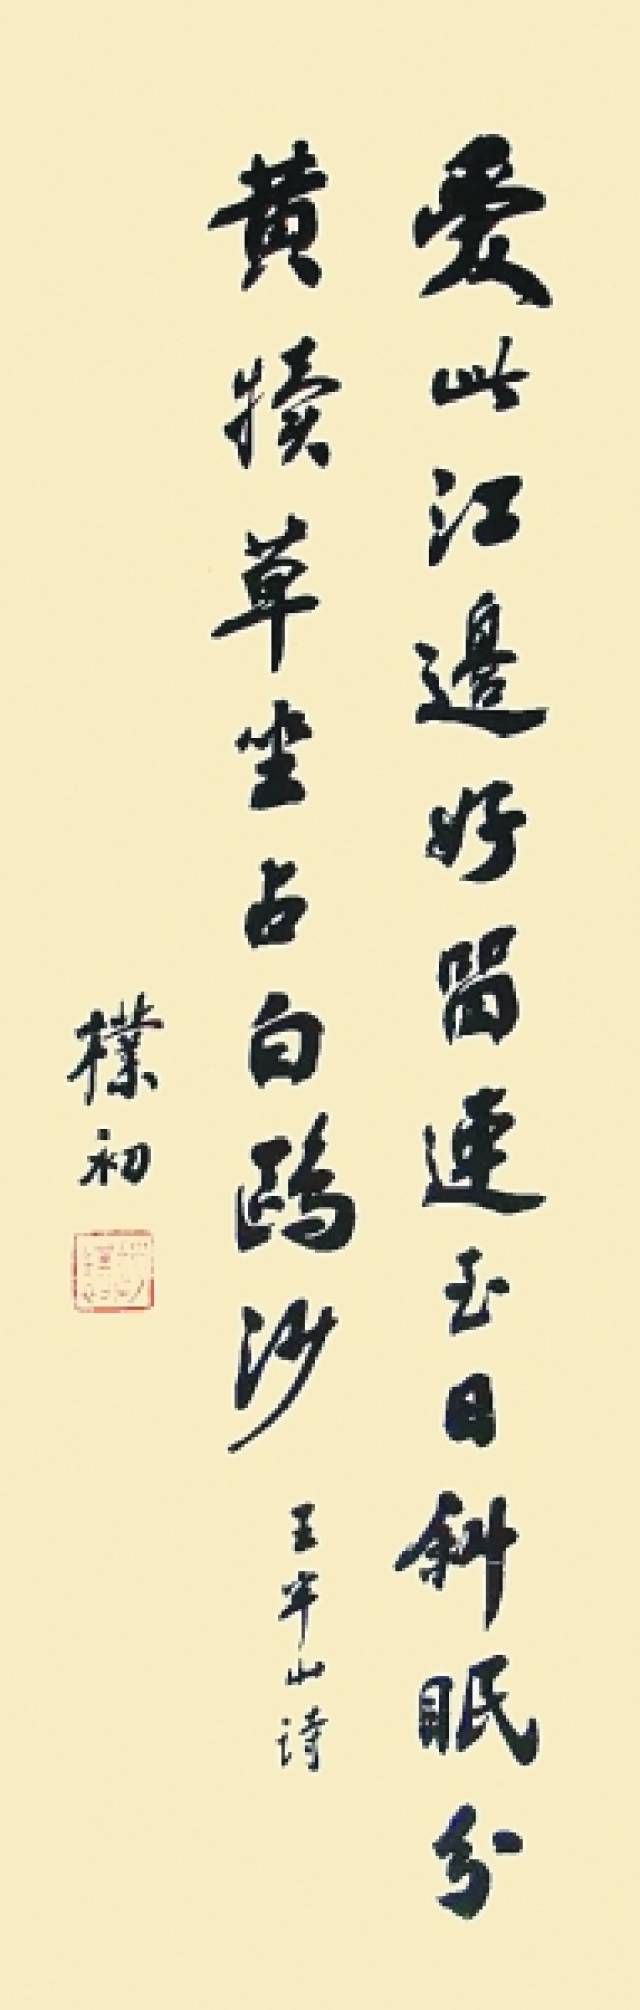 愛此江邊好留連至日斜眠分
黃犢草坐占白鷗沙
王半山诗
樸初